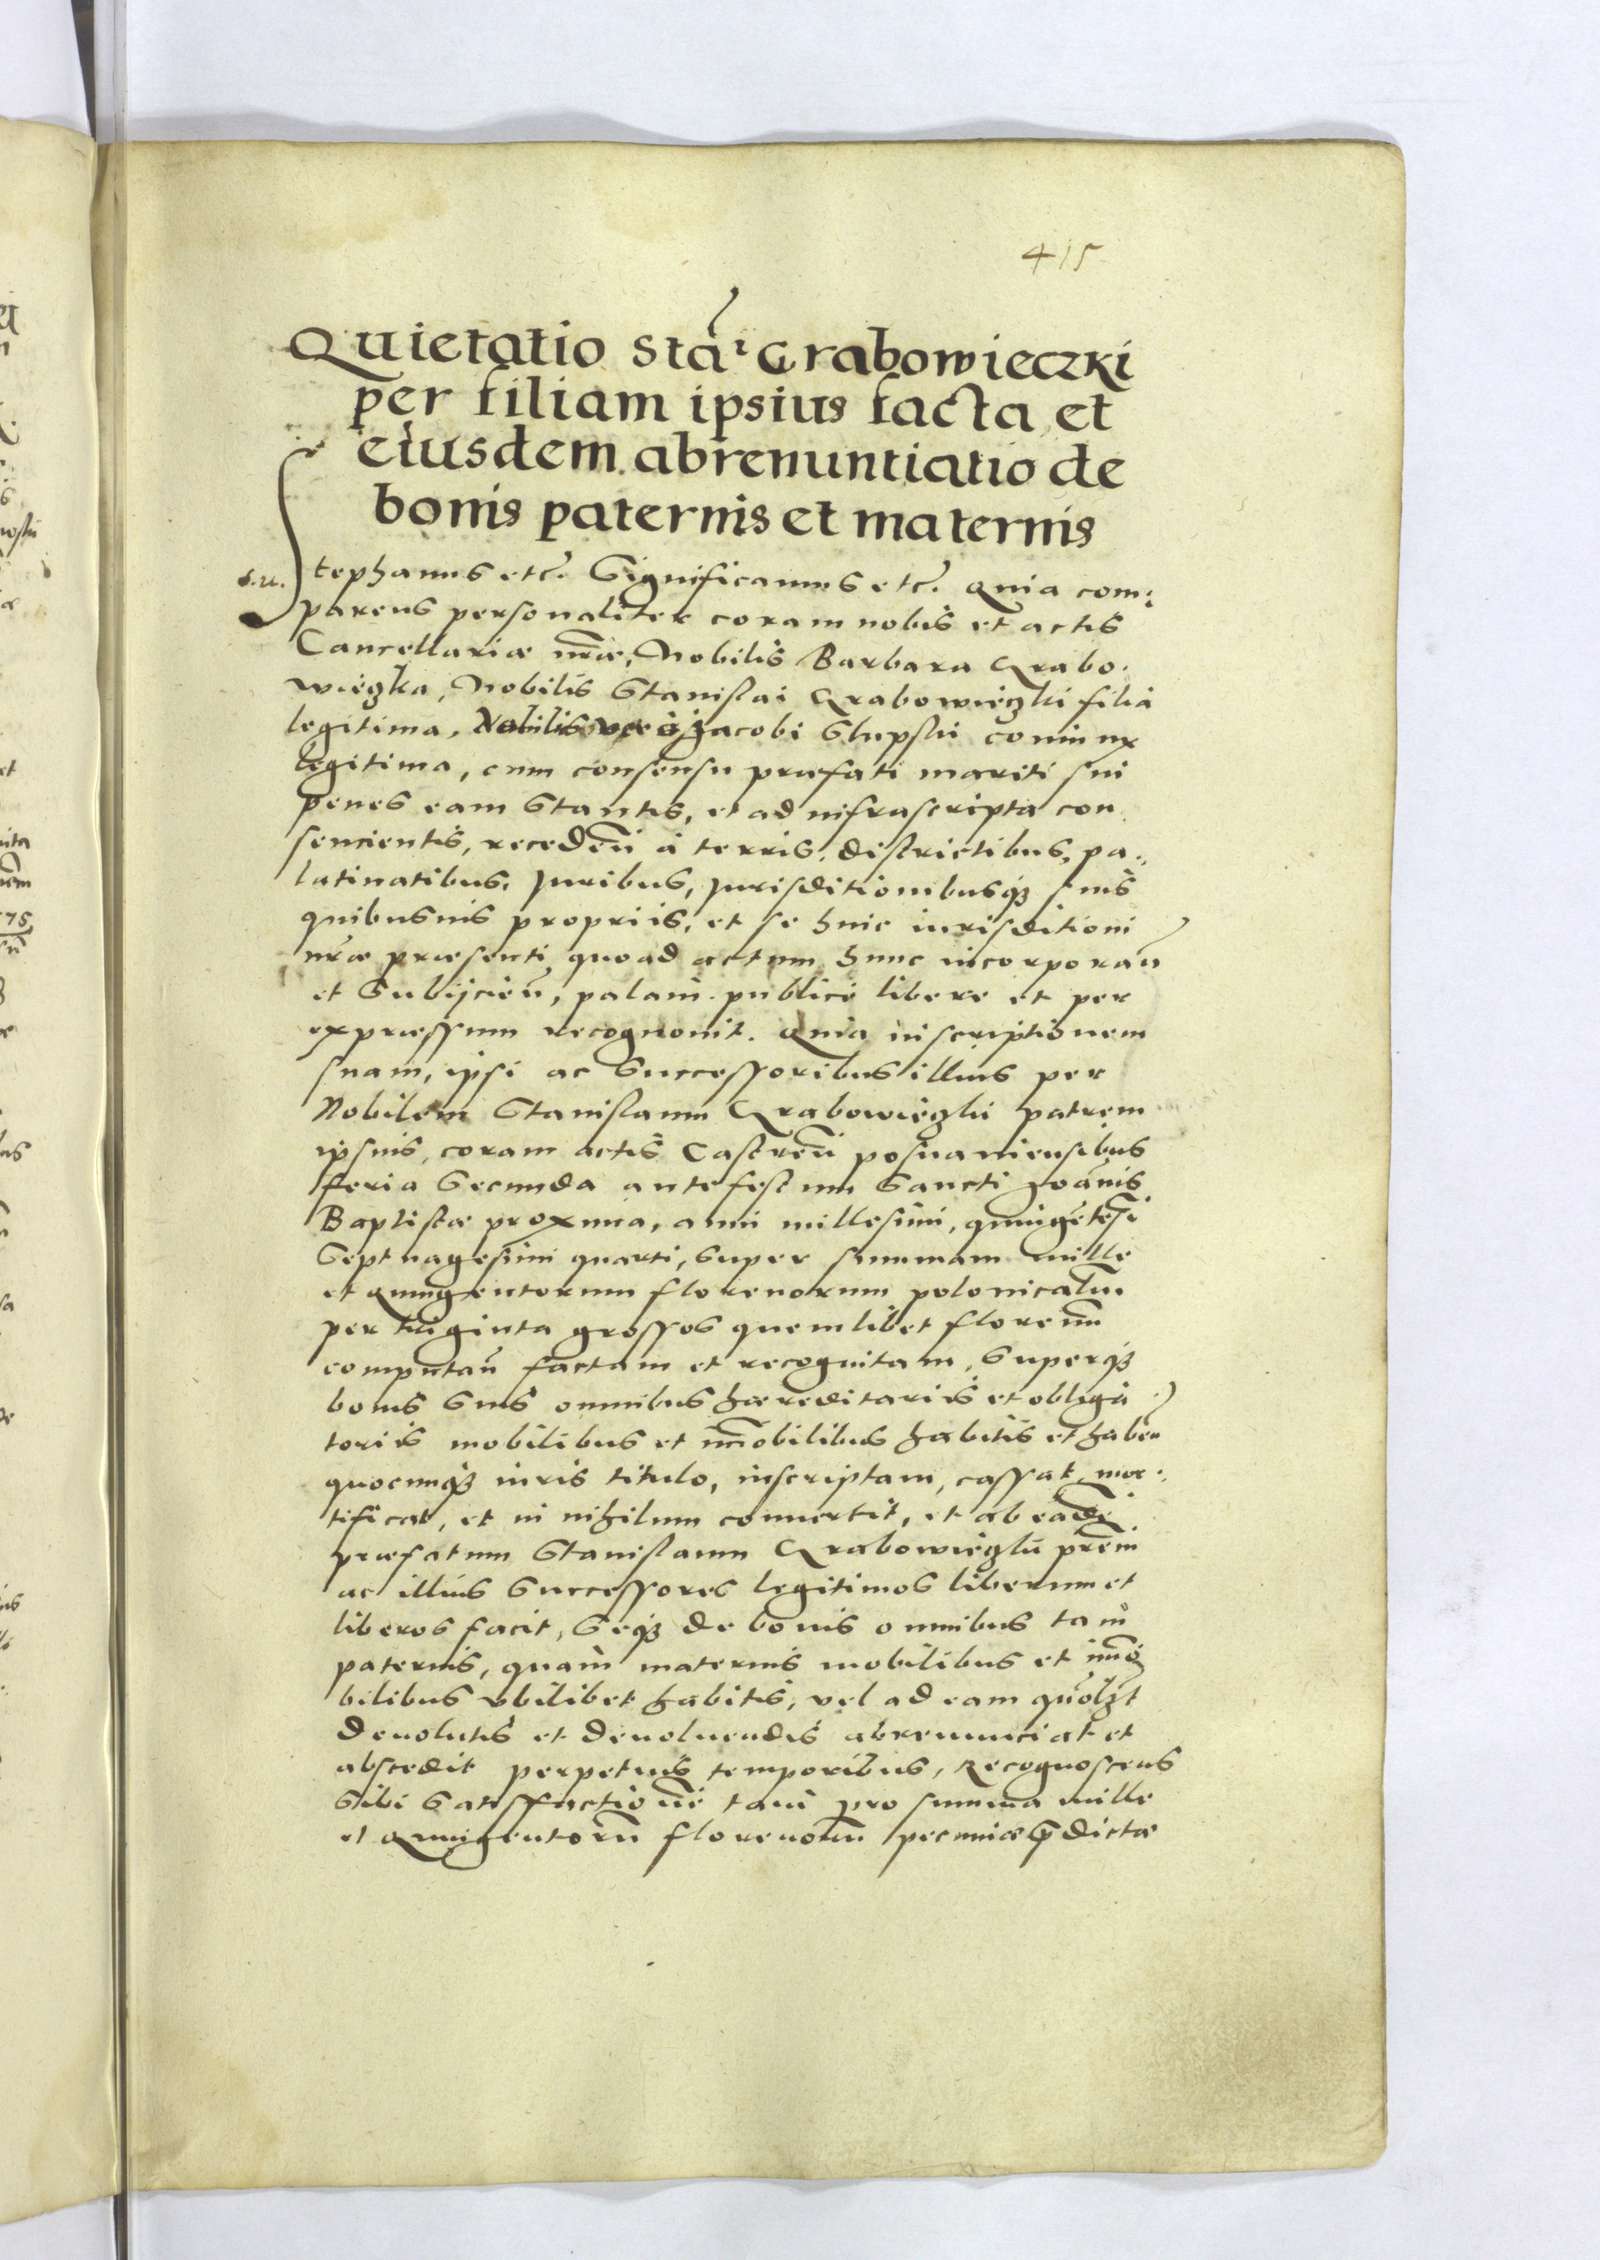 415
Quietatio Sta: Grabowieczki
per filiam ipsius facta et
eiusdem abrenuntiatio de
bonis paternis et maternis
Stephanus etc. Significamus etc. Quia com:
parens personaliter coram nobis et actis
Cancellariæ nræ, Nobilis Barbara Grabo:
wieczka, Nobilis Stanislai Grabowieczki filia
legitima, Nobilis vero Jacobi Slupski coniunx
legitima, cum consensu præfati mariti sui
penes eam stantis, et ad infrascripta con
sencientis, recedeñ à terris, districtibus, pa:
latinatibus, Juribus, Jurisditionibusq3 suis
quibusuis propriis, et se huic iurisditioni
nræ præsenti quo ad actum hunc incorporañ
et subijcieñ, palam publicè libere et per
expræssum recognouit. Quia inscriptionem
suam, ipsi ac Successoribus illius per
Nobilem Stanislaum Grabowieczki patrem
ipsius, coram actis Castreñ posnaniensibus
feria Secunda ante festum Sancti Joañis
Baptistæ proxima, anni millesimi, quingetesi
Septuagesimi quarti, super summam mille
et Quingentorum florenorum polonicaliu
per triginta grossos quemlibet florenu
computañ factam et recognitam, Superq3
bonis suis omnibus hæreditariis et obliga
toriis mobilibus et imobilibus habitis et habeñ
quocunq3 iuris titulo, inscriptam, cassat, mor:
tificat, et in nihilum conuertit, et ab eade
præfatum Stanislaum Grabowieczki prem
ac illius Successores legitimos liberum et
liberos facit, Seq3 de bonis omnibus tam
paternis, quam maternis mobilibus et imo
bilibus vbilibet habitis, vel ad eam quolzt
deuolutis et deuoluendis abrenunciat et
abscedit perpetuis temporibus, Recognoscens
sibi satisfactione tam pro summa mille
et Quingentoru florenoru pecuniæ prædictæ